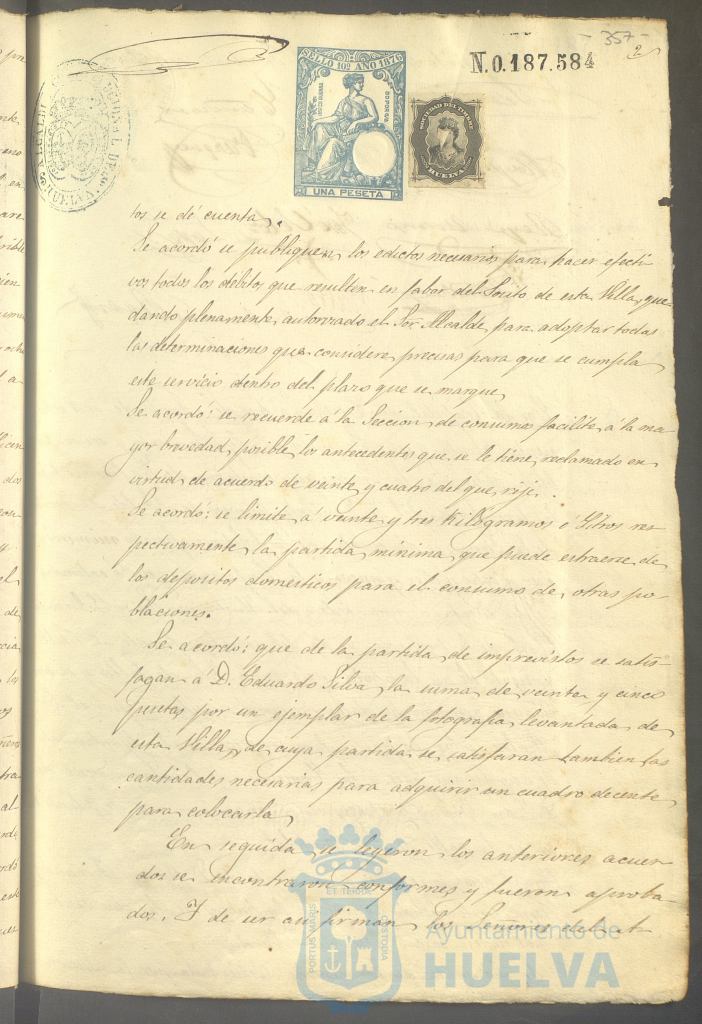 - 357 -
2
N.0.187.584
SELLO 10º AÑO 1876
UNA PESETA
SOCIEDAD DEL TIMBRE
HUELVA
tos se dé cuenta.
Se acordó se publiquen los edictos necesarios para hacer efecti
vos todos los débitos que resulten en fabor del Pósito de esta Villa, que-
dando plenamente autorizado el Sor Alcalde para adoptar todas
las determinaciones que considere precisas para que se cumpla
este servicio dentro del plazo que se marque.
Se acordó: se recuerde á la Seccion de consumos facilite á la ma
yor brevedad posible los antecedentes que se le tiene reclamado en
virtud de acuerdo de veinte y cuatro del que rije.
Se acordó: se limite á veinte y tres Kilógramos ó Litros res
pectivamente la partida mínima que puede estraerse de
los depositos domésticos para el consumo de otras po
blaciones.
Se acordó: que de la partida de imprevistos se satis-
fagan á D. Eduardo Silva la suma de veinte y cinco
pesetas por un ejemplar de la fotografia levantada de
esta Villa, de cuya partida se satisfaran tambien las
cantidades necesarias para adquirir un cuadro decente
para colocarla.
En seguida se leyeron los anteriores acuer-
dos se encontraron conformes y fueron aproba-
dos. Y de ser asi firman los Señores del
PORTUS MARIS
ET TERRÆ
CUSTODIA
Ayuntamiento de
HUELVA